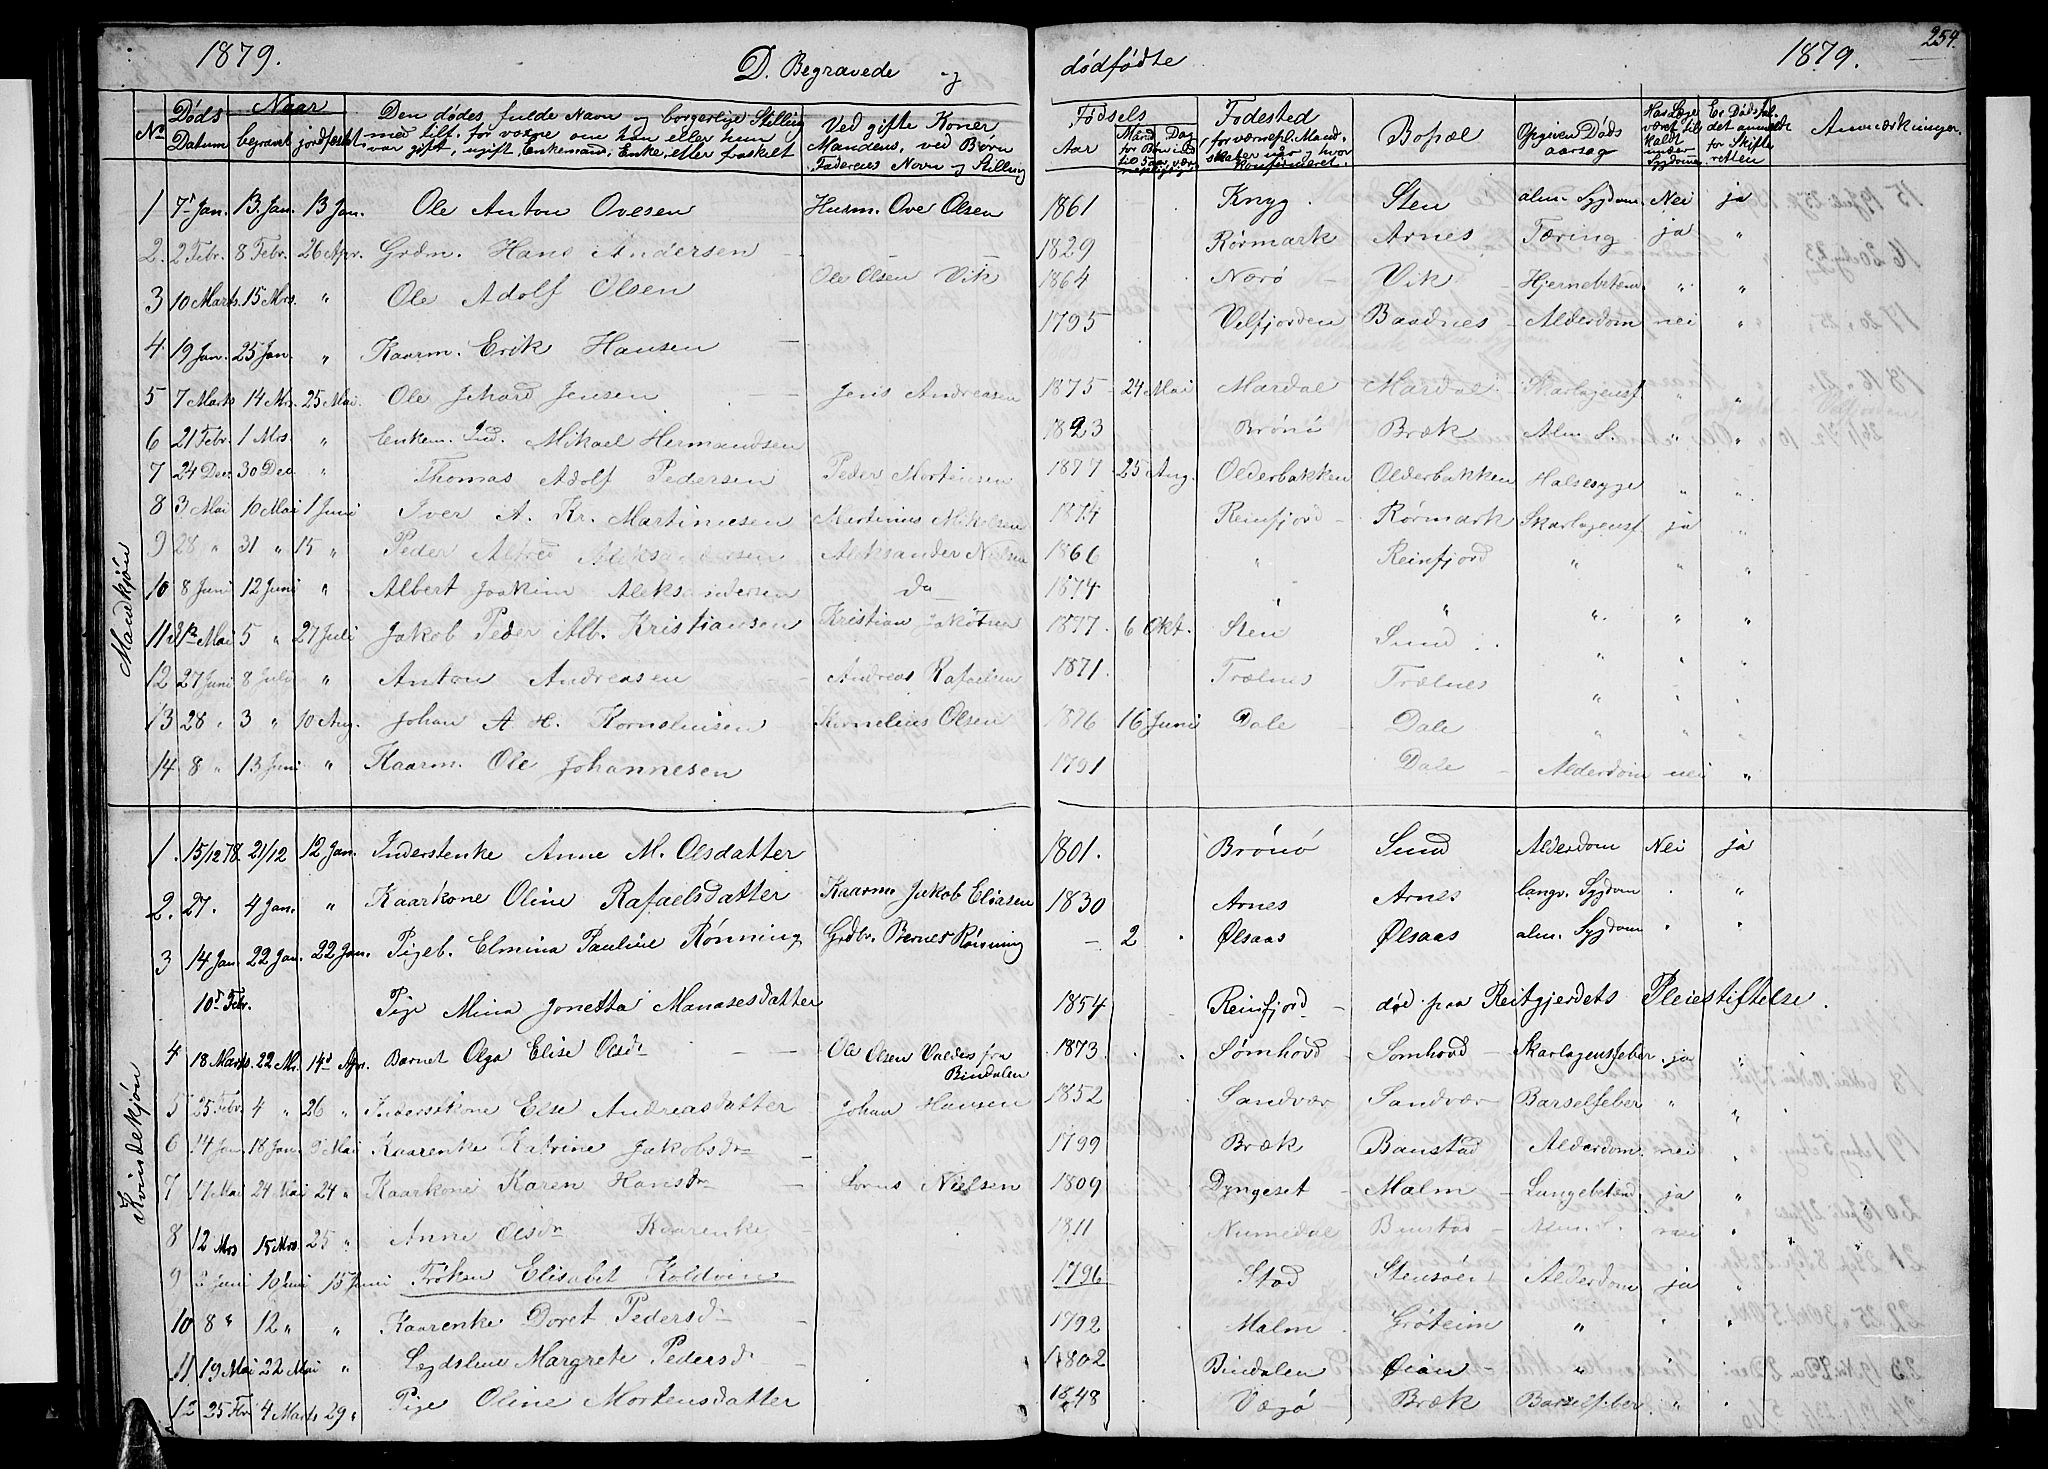 1879. D. Begravede og dødfødte 1879. 254.
No Døds Datum Naar begravet jordfæstet Den dødes fulde Navn og borgerlige Stilling med tilf. for voxne om han eller hun var gift, ugift, Enkemand, Enke, eller fraskilt Ved gifte Koner Mandens, ved Børn Faderens Navn og Stilling Fødsels Aar Fødested Bopæl Opgiven Døds aarsag Anmærkninger
Mandkjøn
1 7d Jan. 13. Jan. 13 Jan. Ole Anton Ovesen Husm. Ove Olsen 1861 Knyg. Sten alm. Sygdom Nei ja
2. 2 Febr. 8 Febr. 26 Apr. Grdm. Hans Andersen — 1829 Rørmark Arnes Tæring ja "
3 10 Marts. 15 Mrs. " Ole Adolf Olsen Ole Olsen Vik 1864 Nærø Vik Hjernebetænd. " "
4. 19 Jan. 25 Jan. " Kaarm. Erik Hansen — 1795 Velfjorden Baadnes Alderdom nei "
5 7 Marts 14 Mrs. 25 Mai. Ole Jensen Jens Andreasen 1875 24 Mai Mardal Mardal Skarlagensf. " "
6 21 Febr. 1 Mrs. " Enkem. Ind. Mikael Hermandsen 1823 Brønø Bræk Alm. S. " "
7 24 Dec. 30 Dec " Thomas Adolf Pedersen Peder Mortensen 1877 25 Aug. Olderbakken Olderbakken Halsesyge " "
8 3 Mai 10 Mai 1 Juni Iver A. Kr. Martinusen Martinus Mikelsen 1874 Reinfjord Rørmark Skarlagensf. ja "
9 28 " 31 " 15 " Peder Alfred Aleksandersen Aleksander Nielsen 1866 " Reinfjord " " "
10 8 Juni 12 Juni " Albert Joakim Aleksandersen do 1874 " " " " "
11 Mai 5 " 27 Juli Jakob Peder Alb. Kristiansen Kristian Jakobsen 1877. 6 Okt. Sten Sund " " "
12 27 Juni 8 Juli " Anton Andreasen Andreas Rafaelsen 1871. Trælnes Trælnes " " "
13 28 " 3 " 10 Aug. Johan A H. Korneliusen Kornelius Olsen 1876 16 Juni Dale Dale " " "
14 8 " 13 Juni " Kaarm. Ole Johannesen 1791 Dale Alderdom nei "
Kvindekjøn
1. 15/12 78. 21/12 12 Jan. Inderstenke Anne M. Olsdatter 1801. Brønø Sund Alderdom Nei ja
2. 27. 4 Jan. " Kaarkone Oline Rafaelsdatter Kaarm. Jakob Eliasen 1830 Arnes Arnes langv. Sygdom "
3 14 Jan. 22 Jan. 22 Jan. Pigeb. Elmina Pauline Rønning Grdbr. Bernes Rønning — 2 Ølsaas Ølsaas alm. Sygdom "
10d Febr. Pige Mina Jonetta Manasesdatter 1854 Reinfjord — død paa Reitgjerdets Pleiestiftelse.
4 18 Marts. 22 Mr. 14d Apr. Barnet Olga Elise Olsdr — Ole Olsen Valdes fra Bindalen 1873. Sømhovd Somhovd Skarlagensfeber ja "
5 25 Febr. 4 " 26 " Inderstkone Else Andreasdatter Johan Hansen 1852 Sandvær Sandvær Barselfeber " "
6 14 Jan. 18 Jan. 9 Mai Kaarenke Katrine Jakobsdr — 1799 Bræk Baustad Alderdom. nei "
7 17 Mai 24 Mai 24 " Kaarkone Karen Hansdr — Nielsen 1809 Dyngeset Malm Lungebetænd. ja "
8 12 Mrs 15 Mrs. 25 " Anne Olsdr Kaarenke 1811 Numedal Alm. S. nei "
9 2 Juni 10 Juni 15 Juni Frøken Elisabet Koldvin 1796 Stad Alderdom ja "
10 8 " 12 " " Kaarenke Doret Pedersdr — 1792 Malm Grøteim " " "
11. 19 Mai 22 Mai " Margrete Pedersdr — 1802 Bindalen Øian " " "
12 25 Fbr 4 Marts 29 " Pige Oline Mortensdatter 1848 Vægø Bræk Barselfeber " "